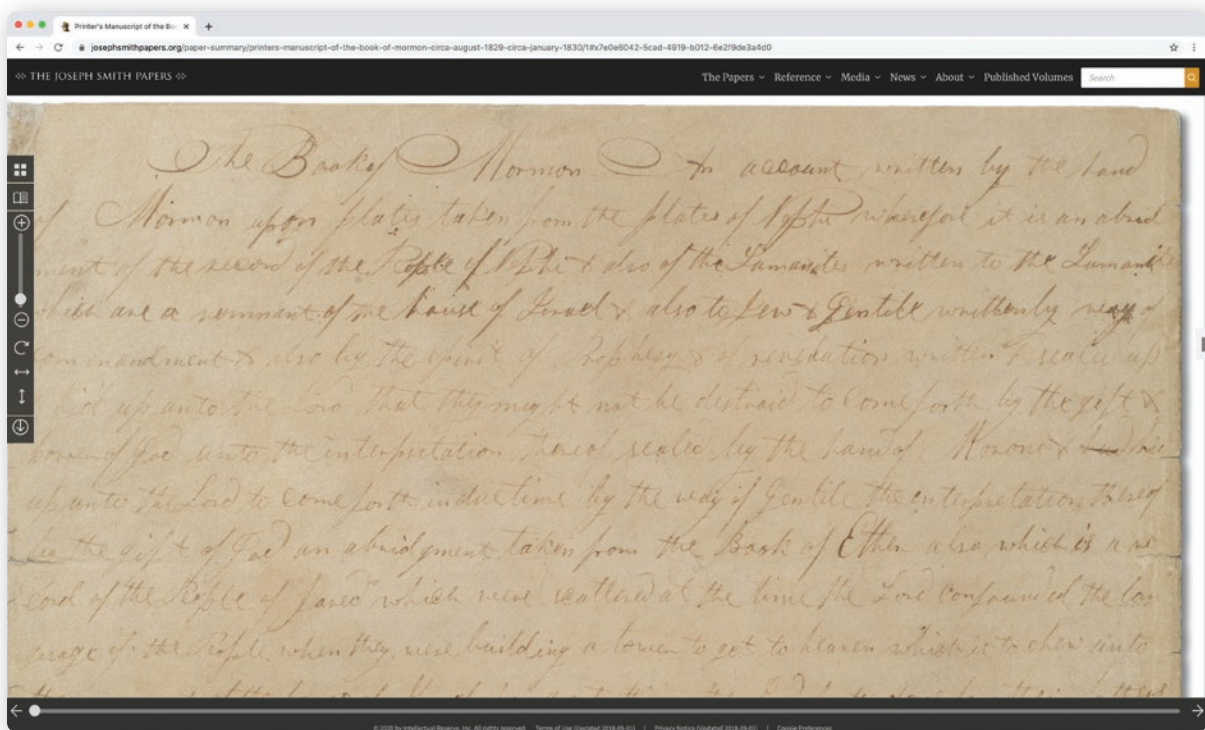 Printer's Manuscript of the Bo
josephsmithpapers.org/paper-summary/printers-manuscript-of-the-book-of-mormon-circa-august-1829-circa-january-1830/1#x7e0e6042-5cad-4919-b012-6e2f9de3a4d0
THE JOSEPH SMITH PAPERS
The Papers Reference Media News About Published Volumes Search
The Book of Mormon An account written by the hand
of Mormon upon plates taken from the plates of Nephi wherefore it is an abrid
ment of the record of the People of Nephi & also of the Lamanites written to the Lamanites
which are a remnant of the house of Israel & also to Jew & Gentile written by way of
commandment & also by the spirit of Prophesy & of revelation written & sealed up
& hid up unto the Lord that they might not be destroid to come forth by the gift &
power of God unto the interpretation thereof sealed by the hand of Moroni & hid
up unto the Lord to come forth in due time by the way of Gentile the interpretation thereof
by the gift of God an abridgment taken from the Book of Ether also which is a re
cord of the People of Jared which were scattered at the time the Lord confounded the lan
guage of the People when they were building a tower to get to heaven which is to shew unto
© 2020 by Intellectual Reserve, Inc. All rights reserved. Terms of Use (Updated 2018-09-01) | Privacy Notice (Updated 2018-09-01) | Cookie Preferences